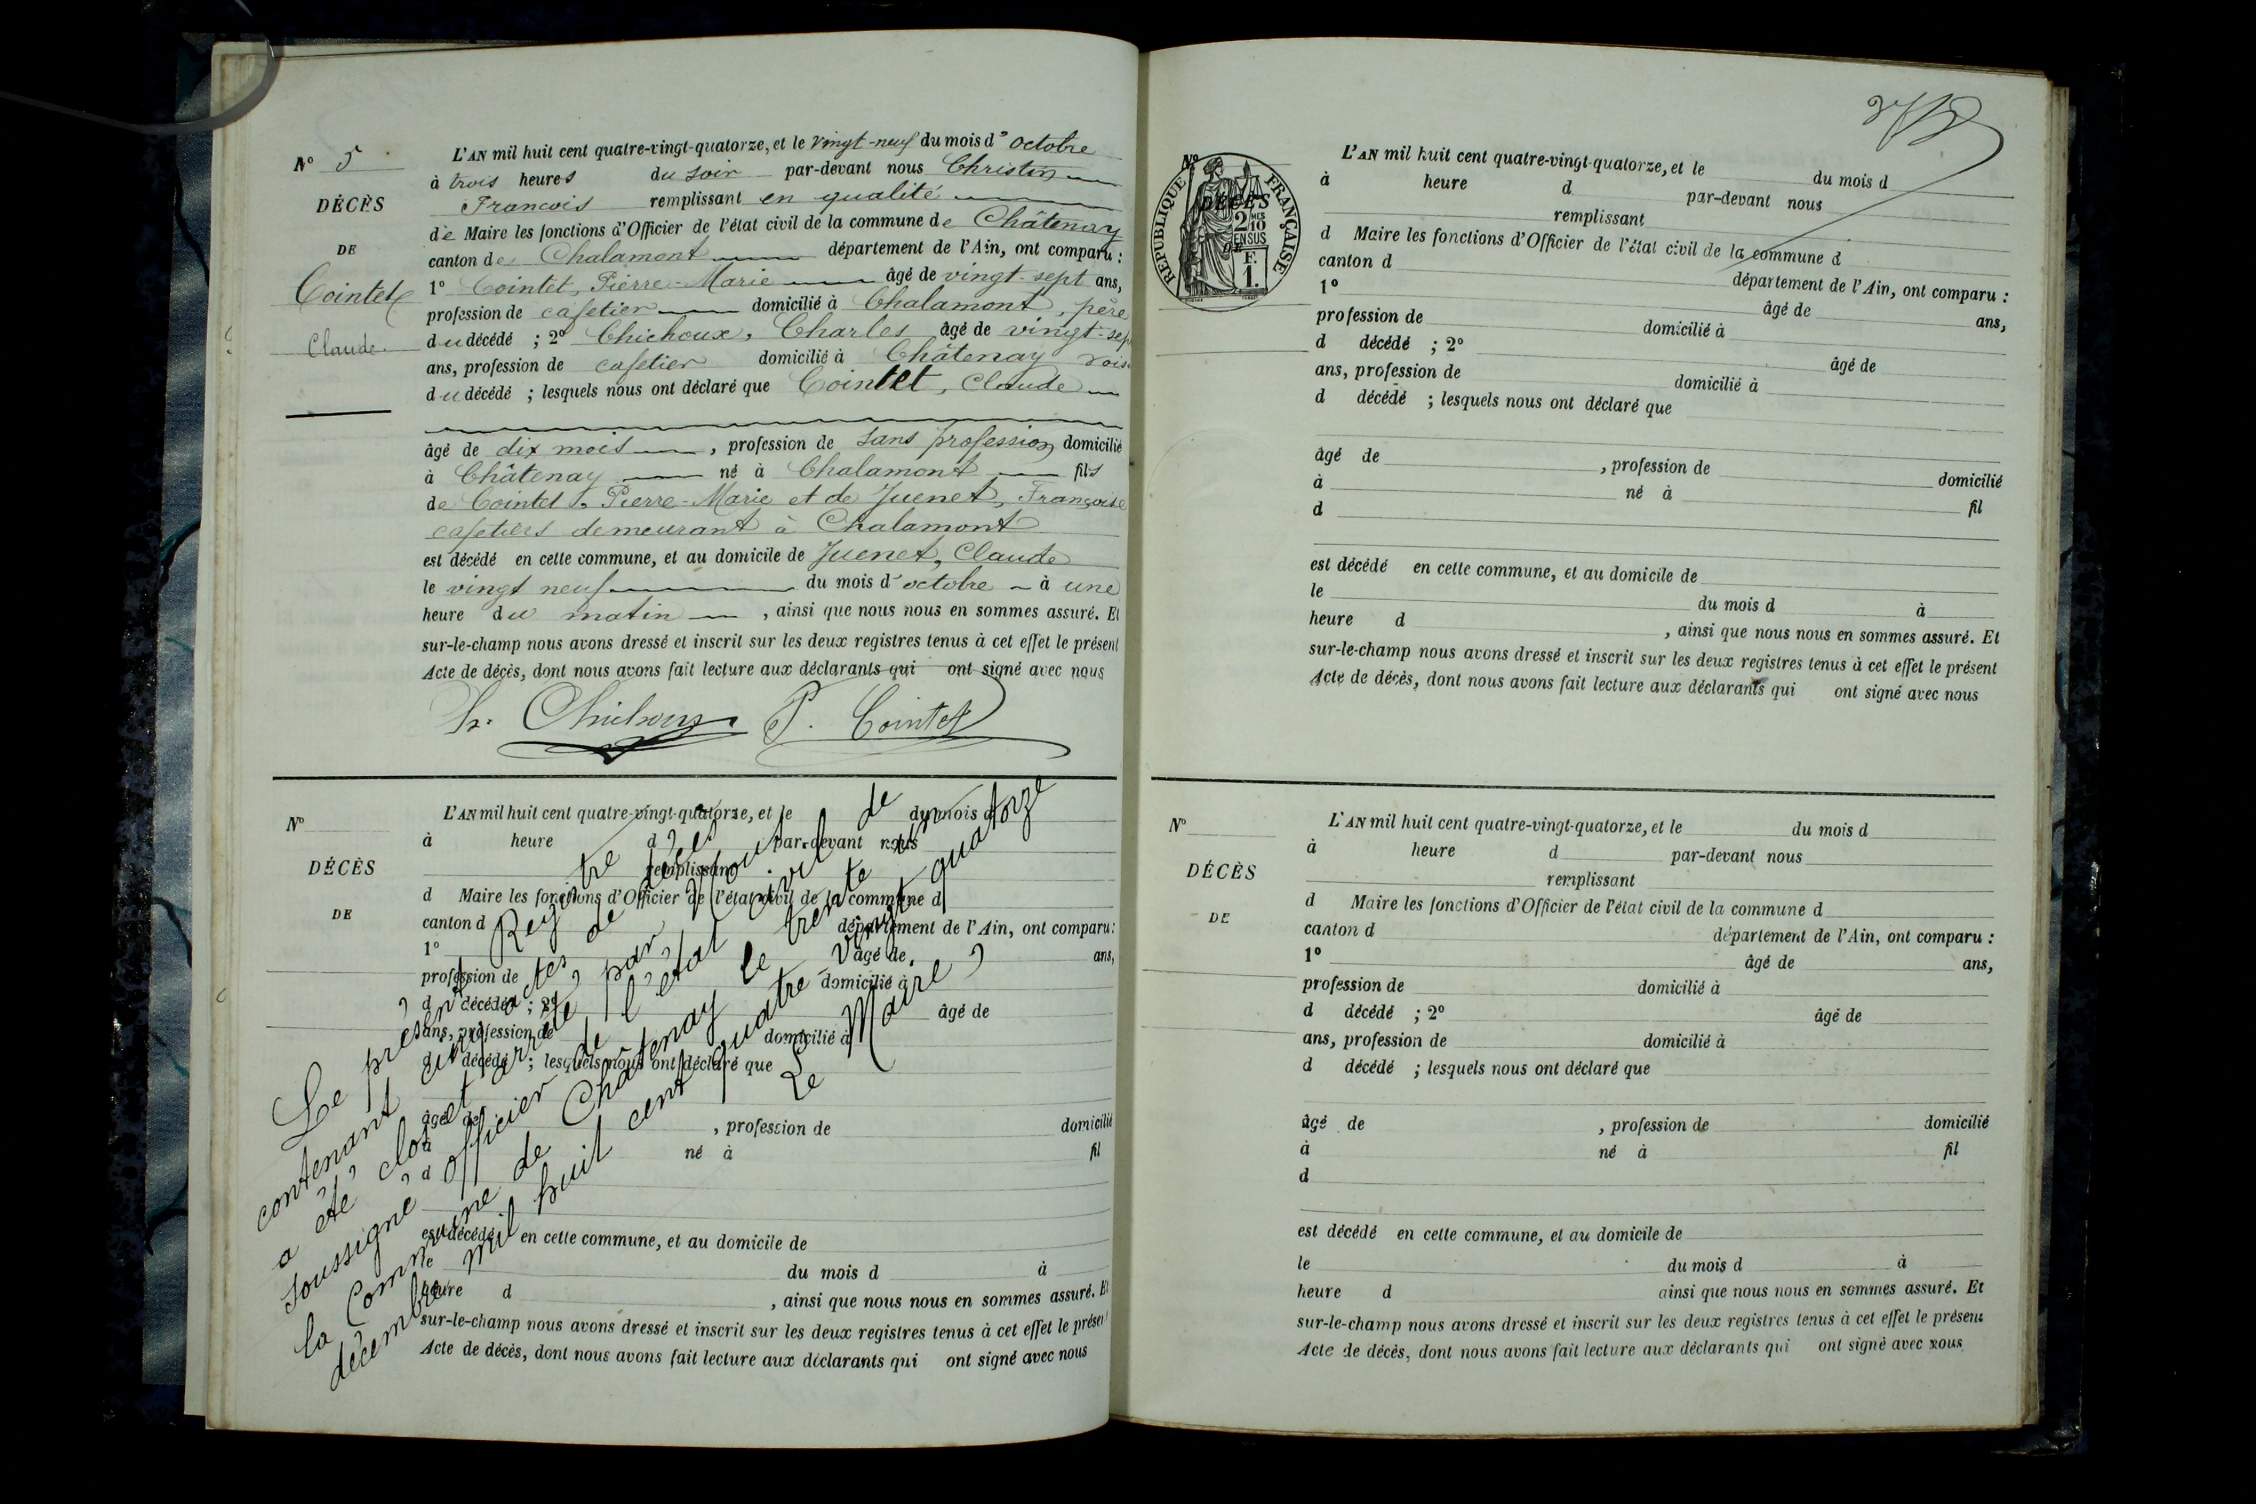 N° 5
DÉCÈS
DE
Cointet
Claude
L'AN mil huit cent quatre-vingt-quatorze, et le vingt-neuf du mois d'octobre
à trois heures du soir par-devant nous Christin
François remplissant en qualité
de Maire les fonctions d'Officier de l'état civil de la commune de Châtenay
canton de Chalamont département de l'Ain, ont comparu :
1° Cointet, Pierre-Marie âgé de vingt-sept ans,
profession de cafetier domicilié à Chalamont, père
du décédé ; 2° Chichoux, Charles âgé de vingt-sept
ans, profession de cafetier domicilié à Châtenay voisin
du décédé ; lesquels nous ont déclaré que Cointet, Claude
âgé de dix mois , profession de sans profession domicilié
à Châtenay né à Chalamont fils
de Cointet, Pierre-Marie et de Juenet, Françoise
cafetiers demeurant à Chalamont
est décédé en cette commune, et au domicile de Juenet, Claude
le vingt neuf du mois d'octobre à une
heure du matin , ainsi que nous nous en sommes assuré. Et
sur-le-champ nous avons dressé et inscrit sur les deux registres tenus à cet effet le présent
Acte de décès, dont nous avons fait lecture aux déclarants qui ont signé avec nous
Chichoux P. Cointet
N°
DÉCÈS
DE
L'AN mil huit cent quatre-vingt-quatorze, et le du mois d
à heure d par-devant nous
remplissant
d Maire les fonctions d'Officier de l'état civil de la commune d
canton d département de l'Ain, ont comparu :
1° âgé de ans,
profession de domicilié à
d décédé ; 2° âgé de
ans, profession de domicilié à
d décédé ; lesquels nous ont déclaré que
âgé de , profession de domicilié
à né à fil
d
est décédé en cette commune, et au domicile de
le du mois d à
heure d , ainsi que nous nous en sommes assuré. Et
sur-le-champ nous avons dressé et inscrit sur les deux registres tenus à cet effet le présent
Acte de décès, dont nous avons fait lecture aux déclarants qui ont signé avec nous
Le présent Registre
contenant cinq actes de décès
a été clos et arrêté, par Nous
soussigné officier de l'état civil de
la Commune de Châtenay le trente un
décembre mil huit cent quatre-vingt quatorze
Le Maire
N°
DÉCÈS
DE
RÉPUBLIQUE FRANÇAISE
2 MES
10
EN SUS
F.
1.
L'AN mil huit cent quatre-vingt-quatorze, et le du mois d
à heure d par-devant nous
remplissant
d Maire les fonctions d'Officier de l'état civil de la commune d
canton d département de l'Ain, ont comparu :
1° âgé de ans,
profession de domicilié à
d décédé ; 2° âgé de
ans, profession de domicilié à
d décédé ; lesquels nous ont déclaré que
âgé de , profession de domicilié
à né à fil
d
est décédé en cette commune, et au domicile de
le du mois d à
heure d , ainsi que nous nous en sommes assuré. Et
sur-le-champ nous avons dressé et inscrit sur les deux registres tenus à cet effet le présent
Acte de décès, dont nous avons fait lecture aux déclarants qui ont signé avec nous
N°
DÉCÈS
DE
L'AN mil huit cent quatre-vingt-quatorze, et le du mois d
à heure d par-devant nous
remplissant
d Maire les fonctions d'Officier de l'état civil de la commune d
canton d département de l'Ain, ont comparu :
1° âgé de ans,
profession de domicilié à
d décédé ; 2° âgé de
ans, profession de domicilié à
d décédé ; lesquels nous ont déclaré que
âgé de , profession de domicilié
à né à fil
d
est décédé en cette commune, et au domicile de
le du mois d à
heure d ainsi que nous nous en sommes assuré. Et
sur-le-champ nous avons dressé et inscrit sur les deux registres tenus à cet effet le présent
Acte de décès, dont nous avons fait lecture aux déclarants qui ont signé avec nous